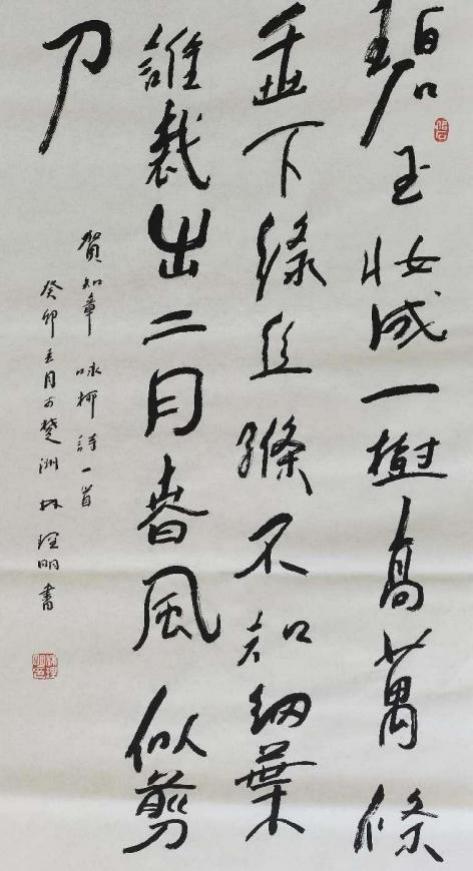 碧玉妆成一樹高萬條
垂下綠丝縧不知細葉
誰裁出二月春風似剪
刀
賀知章 咏柳詩一首
癸卯月于楚洲 林理明書